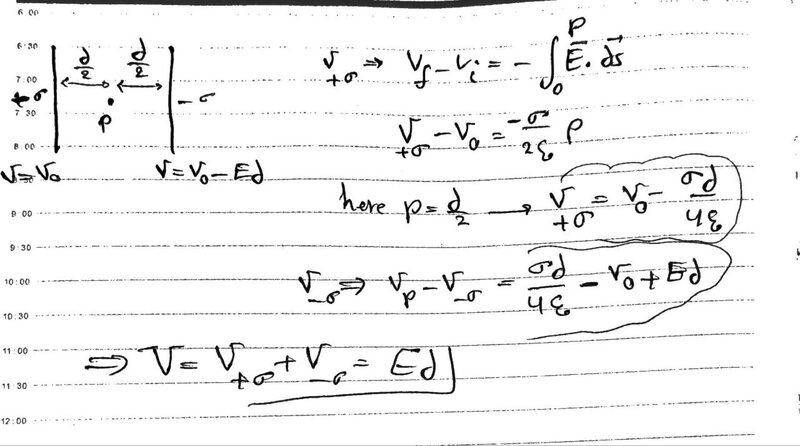 6:00
6:30
7:00
7:30
8:00
9:00
9:30
10:00
10:30
11:00
11:30
12:00
d/2 d/2
+σ P -σ
V=V₀ V=V₀-Ed
V₊σ ⇒ V_f - V_i = - ∫₀ᴾ E⃗. ds⃗
V₊σ - V₀ = -σ/2ε P
here P = d/2 → V₊σ = V₀ - σd/4ε
V₋σ ⇒ V_p - V₋σ = σd/4ε - V₀ + Ed
⇒ V = V₊σ + V₋σ = Ed